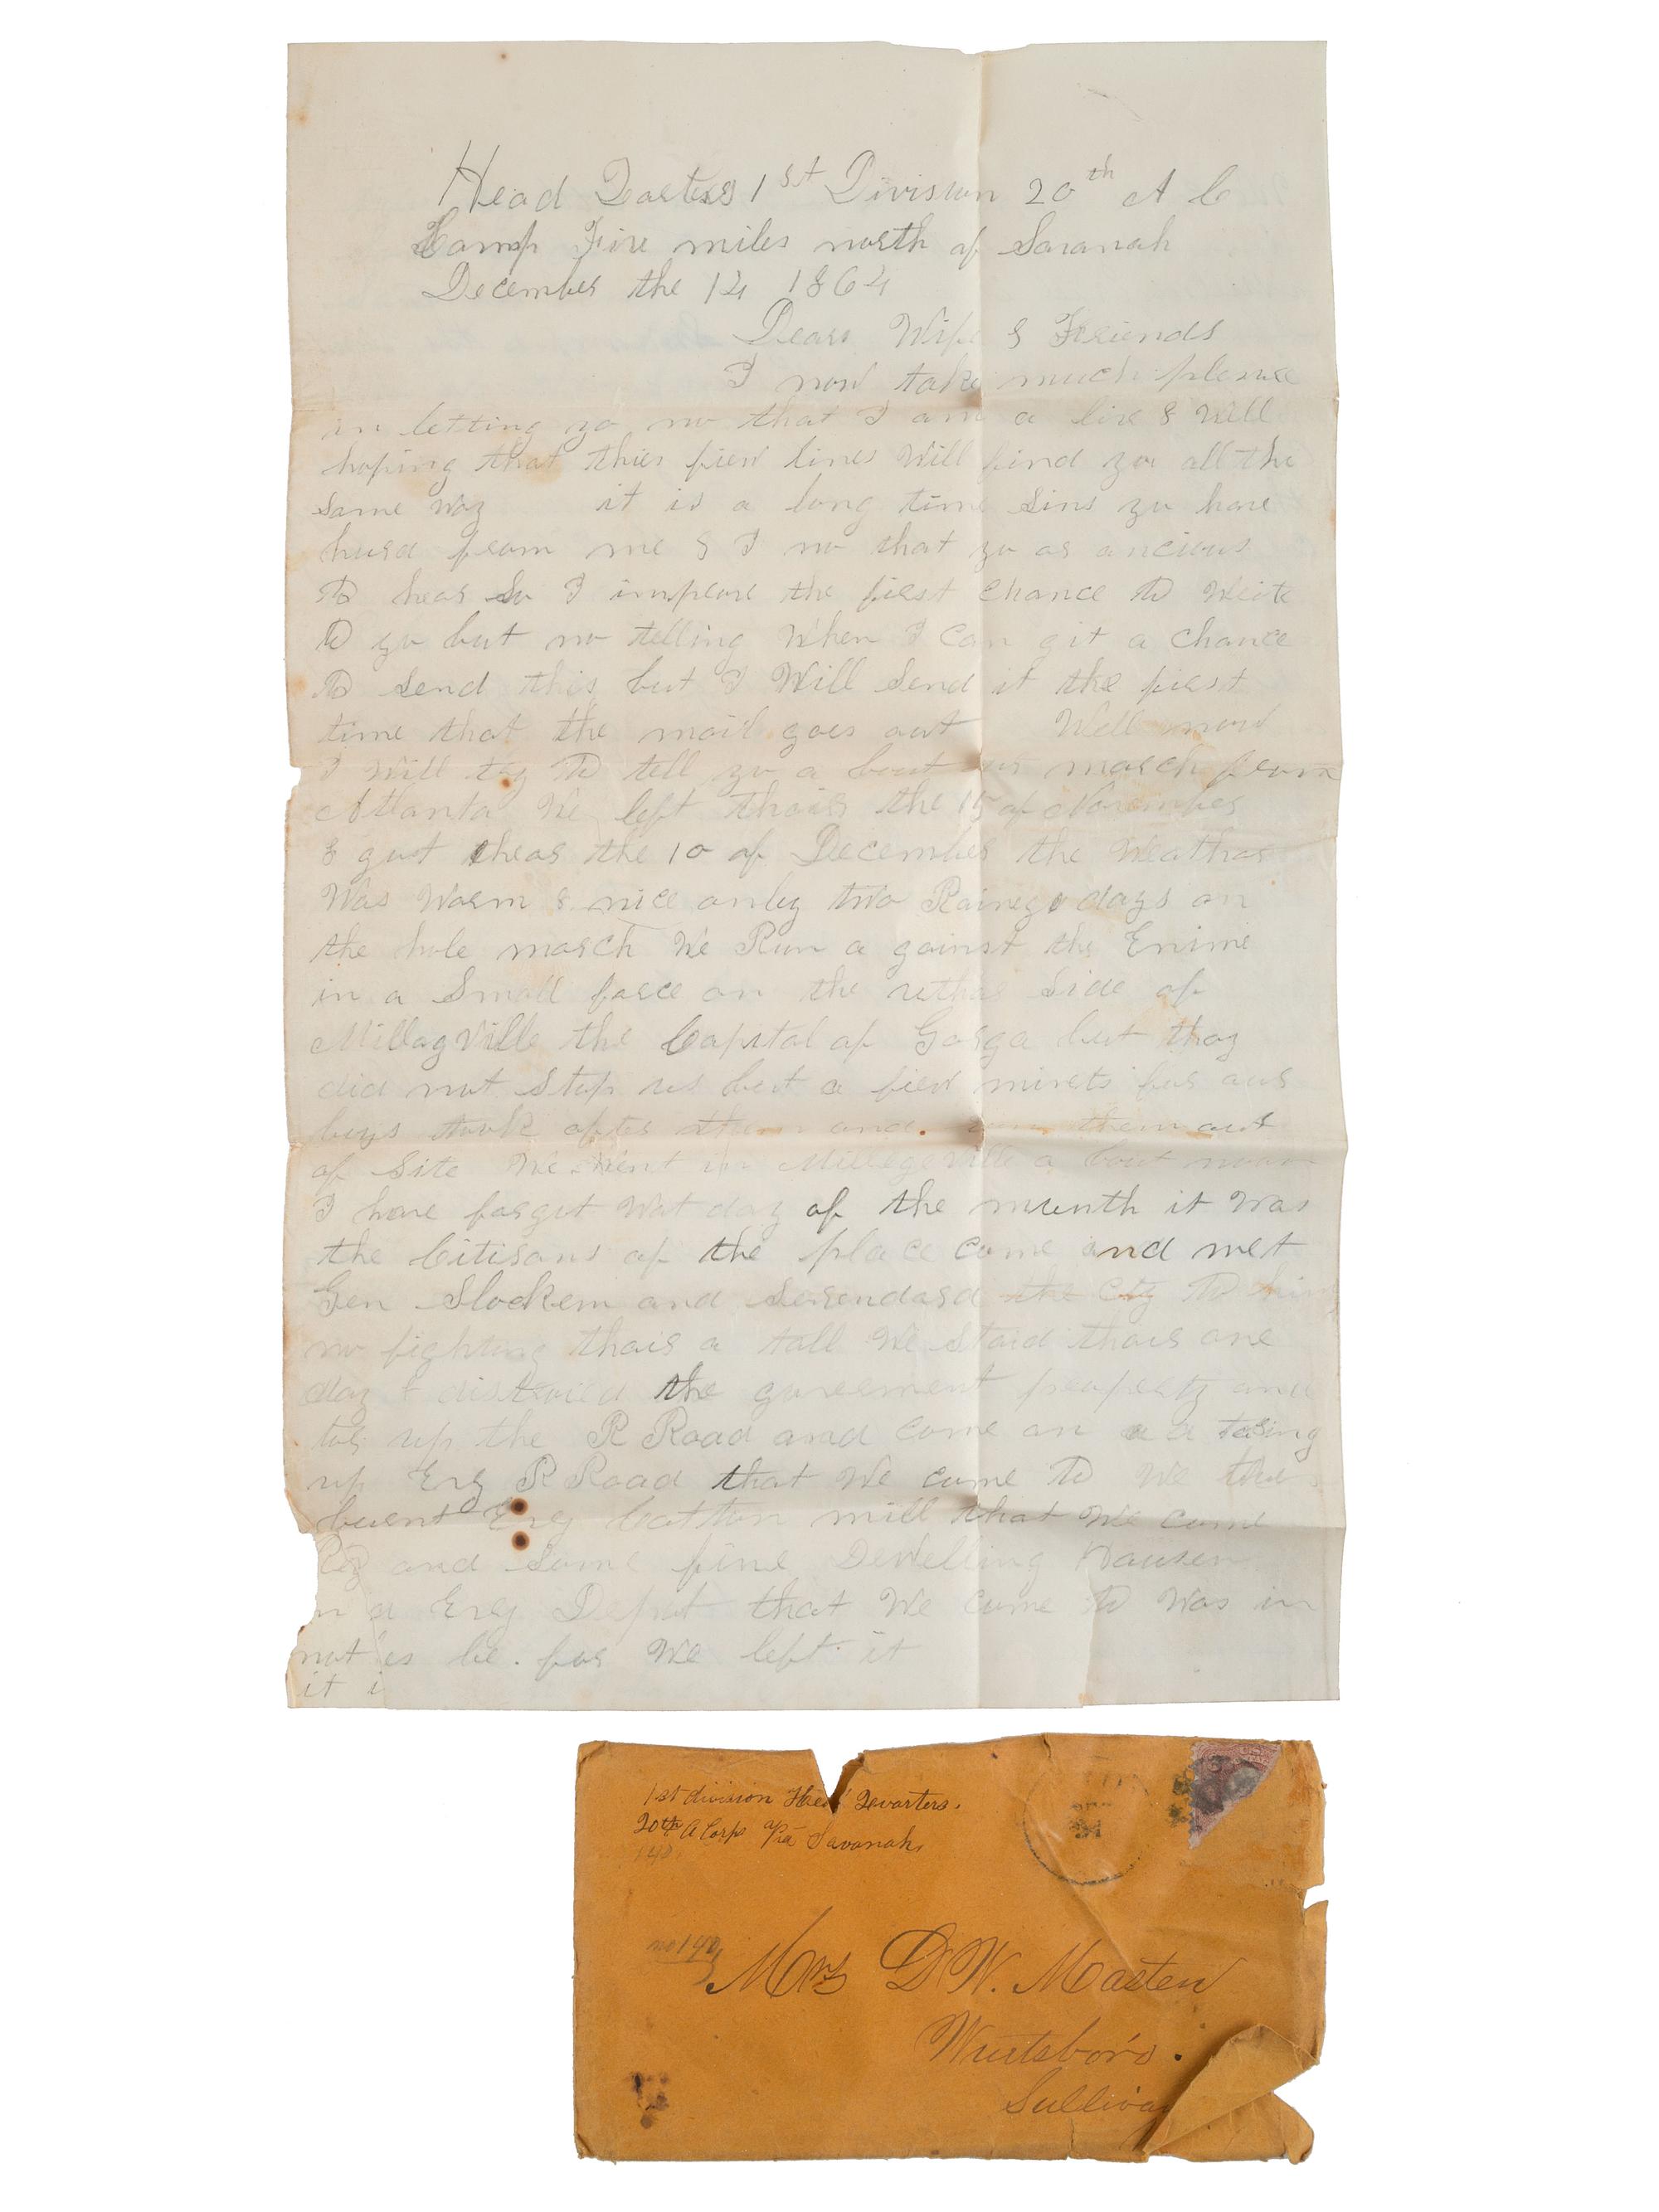 Head Qarters 1st Division 20th A C
Camp Five miles north of Savanah
December the 14 1864
Dear Wife & Friends
I now take much plesure
in letting yo no that I am a live & Well
hoping that thies fiew lines Will find you all the
same way it is a long time Sins yu have
hurd from me & I no that yo ar ancious
To hear So I improve the first chance To Write
To yo but no telling When I can git a chance
To Send this but I Will Send it the first
time that the mail goes out Well now
I Will try To tell yo a bout our march from
Atlanta We left thair the 15 of November
& gut hear the 10 of December the Weather
Was Warm & nice only two Rainey days on
the hole march We Run a gainst the Enime
in a Small force on the uther Side of
Millagville the Capital of Gorga but thay
did not Stop us but a fiew minets for our
boys took after them and run them out
of Site We Went in Millegeville a bout noon
I have forget Wat day of the munth it Was
the Citisans of the place come and met
Gen Slockem and Serendard the City To him
no fighting thair a tall We Staid thair one
day & distroied the guverment properly and
tor up the R Road and come on a taring
up Evry R Road that We come To We
burnt Evry Cotton mill that We come
By and Some fine Dewelling Hausen
a Evry Deput that We come To Was in
es be for We left it
not
it i
1st division Head Quarters.
20th A Corps Via Savanah,
140
no 140
Mrs D W. Masten
Wurtsboro.
Sullivan